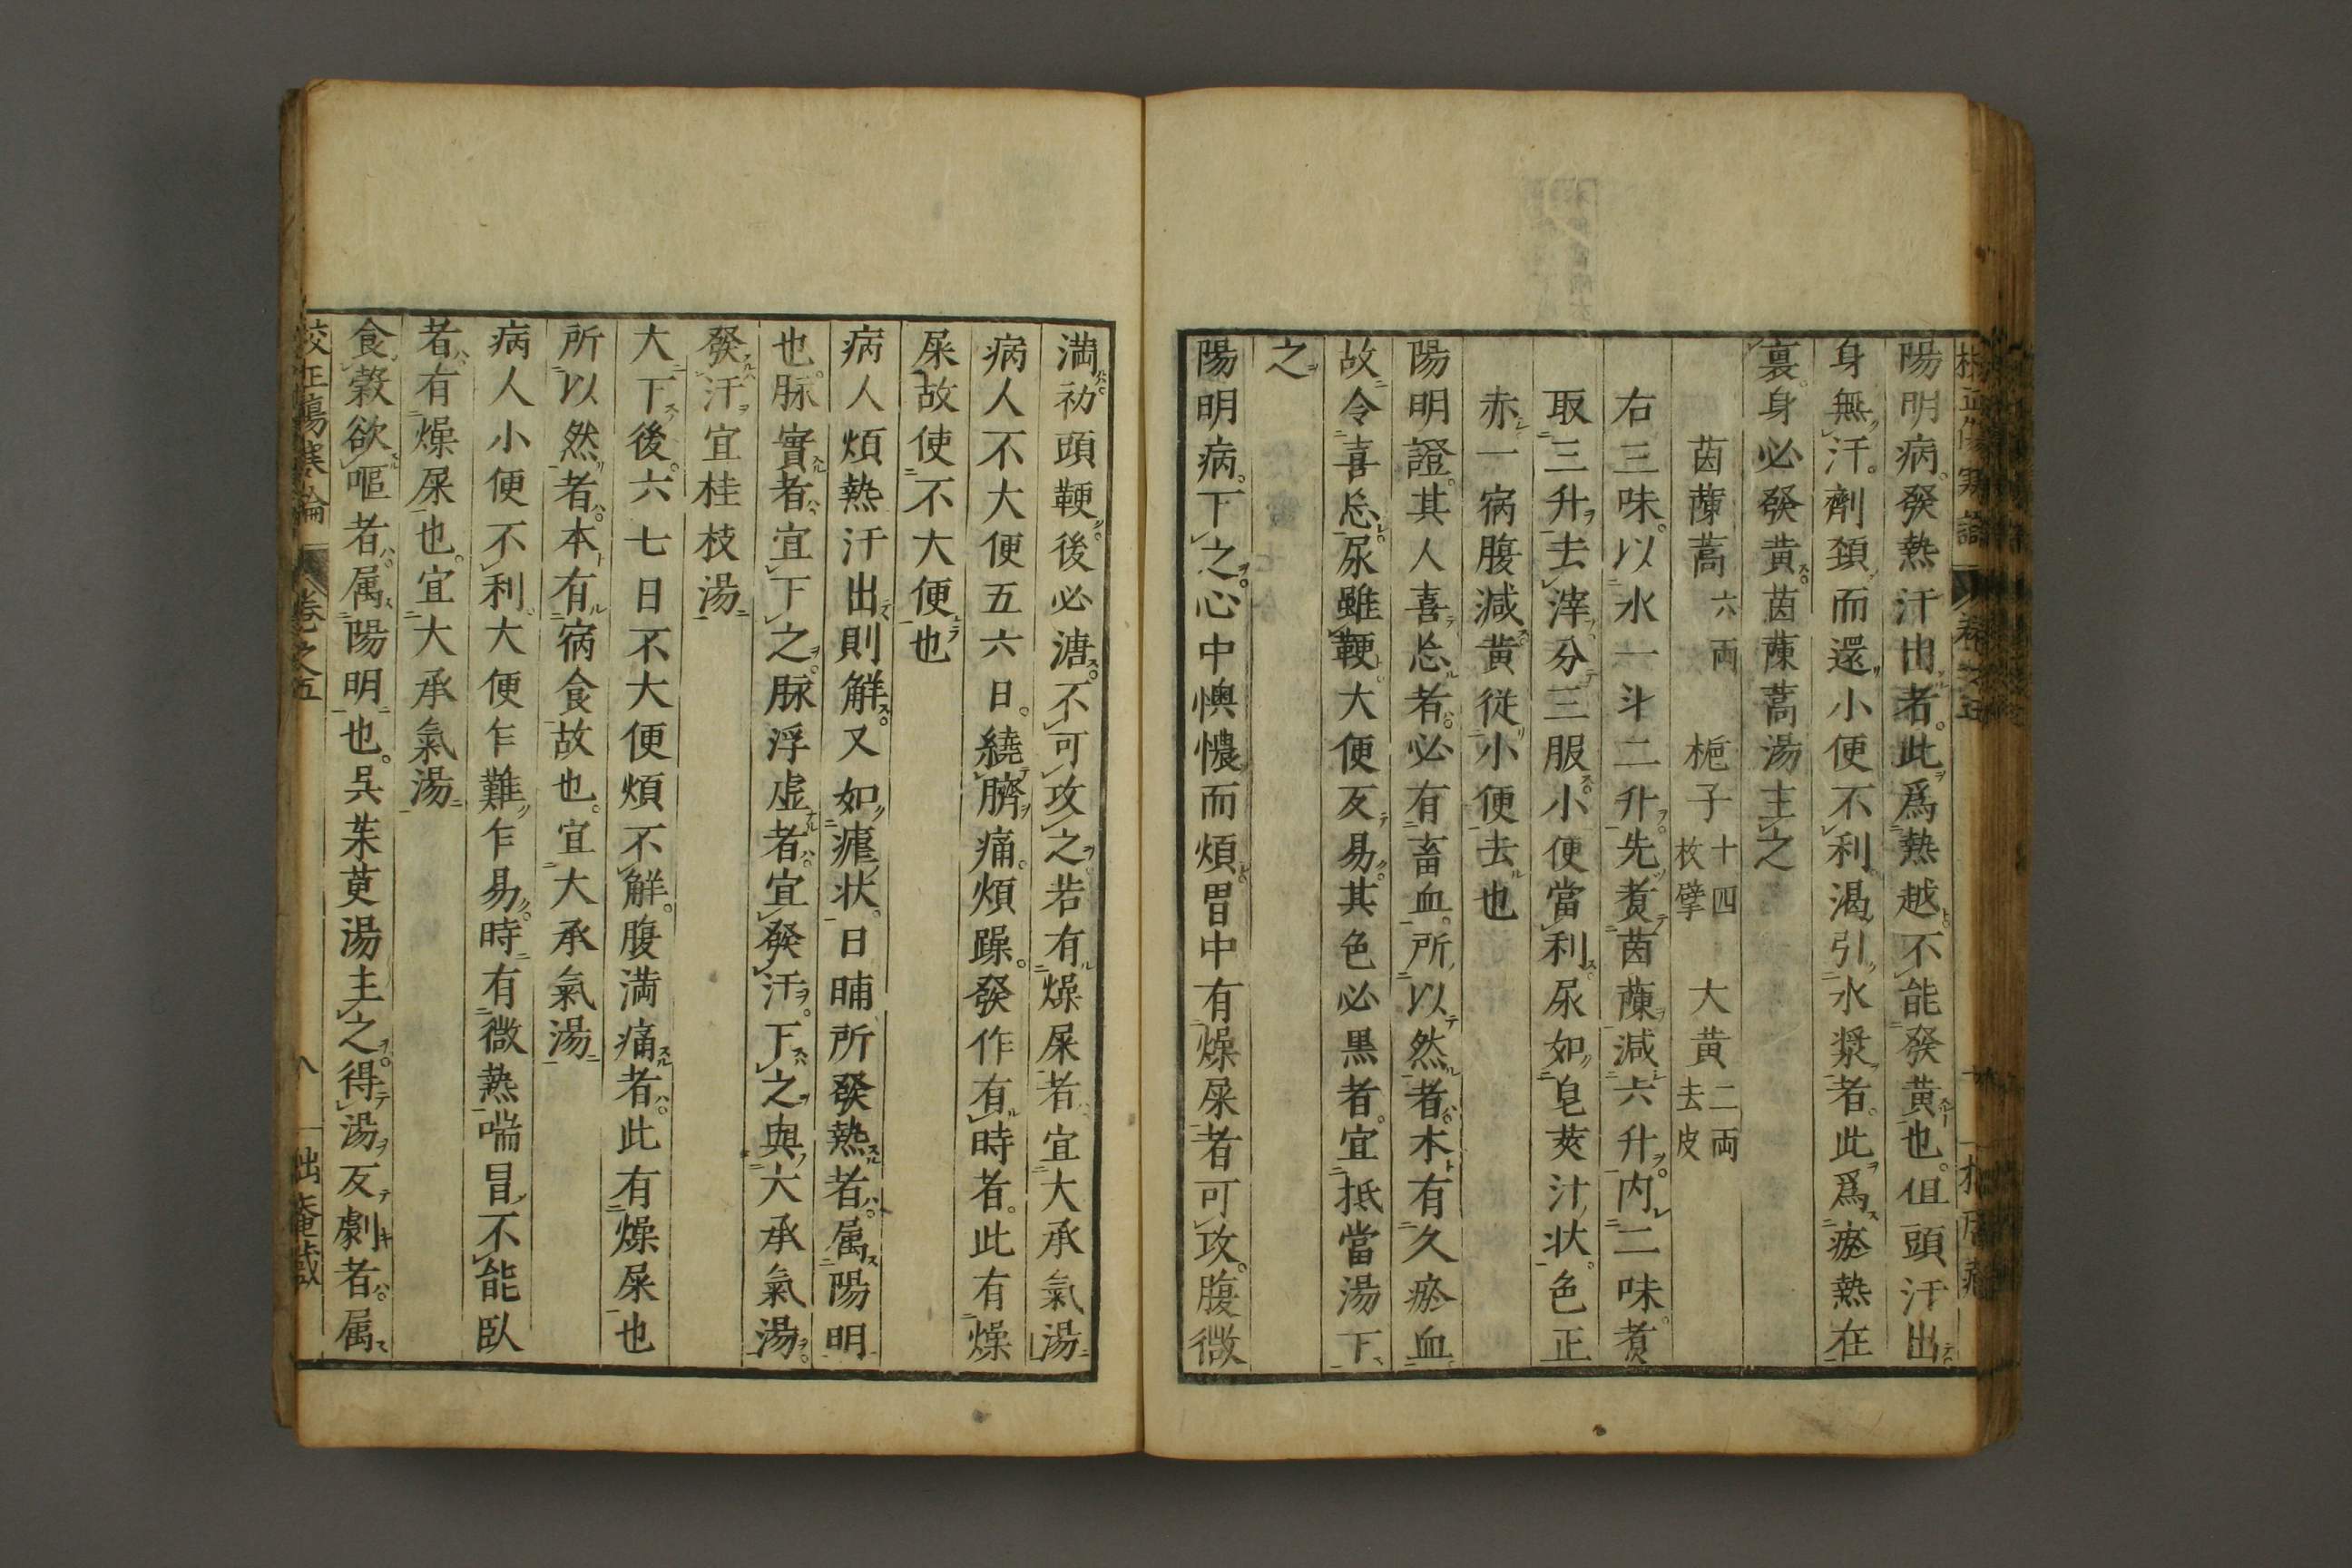 陽明病。發熱汗出者。此爲熱越。不能發黃也。但頭汗出
身無汗。劑頚而還。小便不利。渇引水漿者。此爲瘀熱在
裏。身必發黄。茵蔯蒿湯主之
茵蔯蒿六両 梔子十四枚擘 大黄二両去皮
右三味。以水一斗二升。先煮茵蔯減六升。内二味。煮
取三升。去滓。分三服。小便當利。尿如皂莢汁状。色正
赤。一宿腹減。黄從小便去也
陽明證。其人喜忘者。必有畜血。所以然者。本有久瘀血。
故令喜忘。尿雖鞕。大便反易。其色必黒者。宜抵當湯下
之
陽明病。下之。心中懊憹而煩。胃中有燥屎者可攻。腹微
満。初頭鞕。後必溏。不可攻之。若有燥屎者。宜大承氣湯
病人不大便五六日。繞臍痛。煩躁。發作有時者。此有燥
屎。故使不大便也
病人煩熱汗出則解。又如瘧状。日晡所發熱者。属陽明
也。脉實者。宜下之。脉浮虚者。宜發汗。下之與大承氣湯。
發汗宜桂枝湯
大下後。六七日不大便煩不解。腹満痛者。此有燥屎也
所以然者。本有宿食故也。宜大承氣湯
病人小便不利。大便乍難乍易。時有微熱喘冒不能臥
者。有燥屎也。宜大承氣湯
食穀欲嘔者。属陽明也。呉茱萸湯主之。得湯反劇者。属
校正傷寒論 卷之五 八